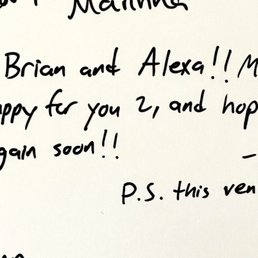 Brian and Alexa!!
ppy for you 2, and hop
gain soon!! -
P.S. this ven